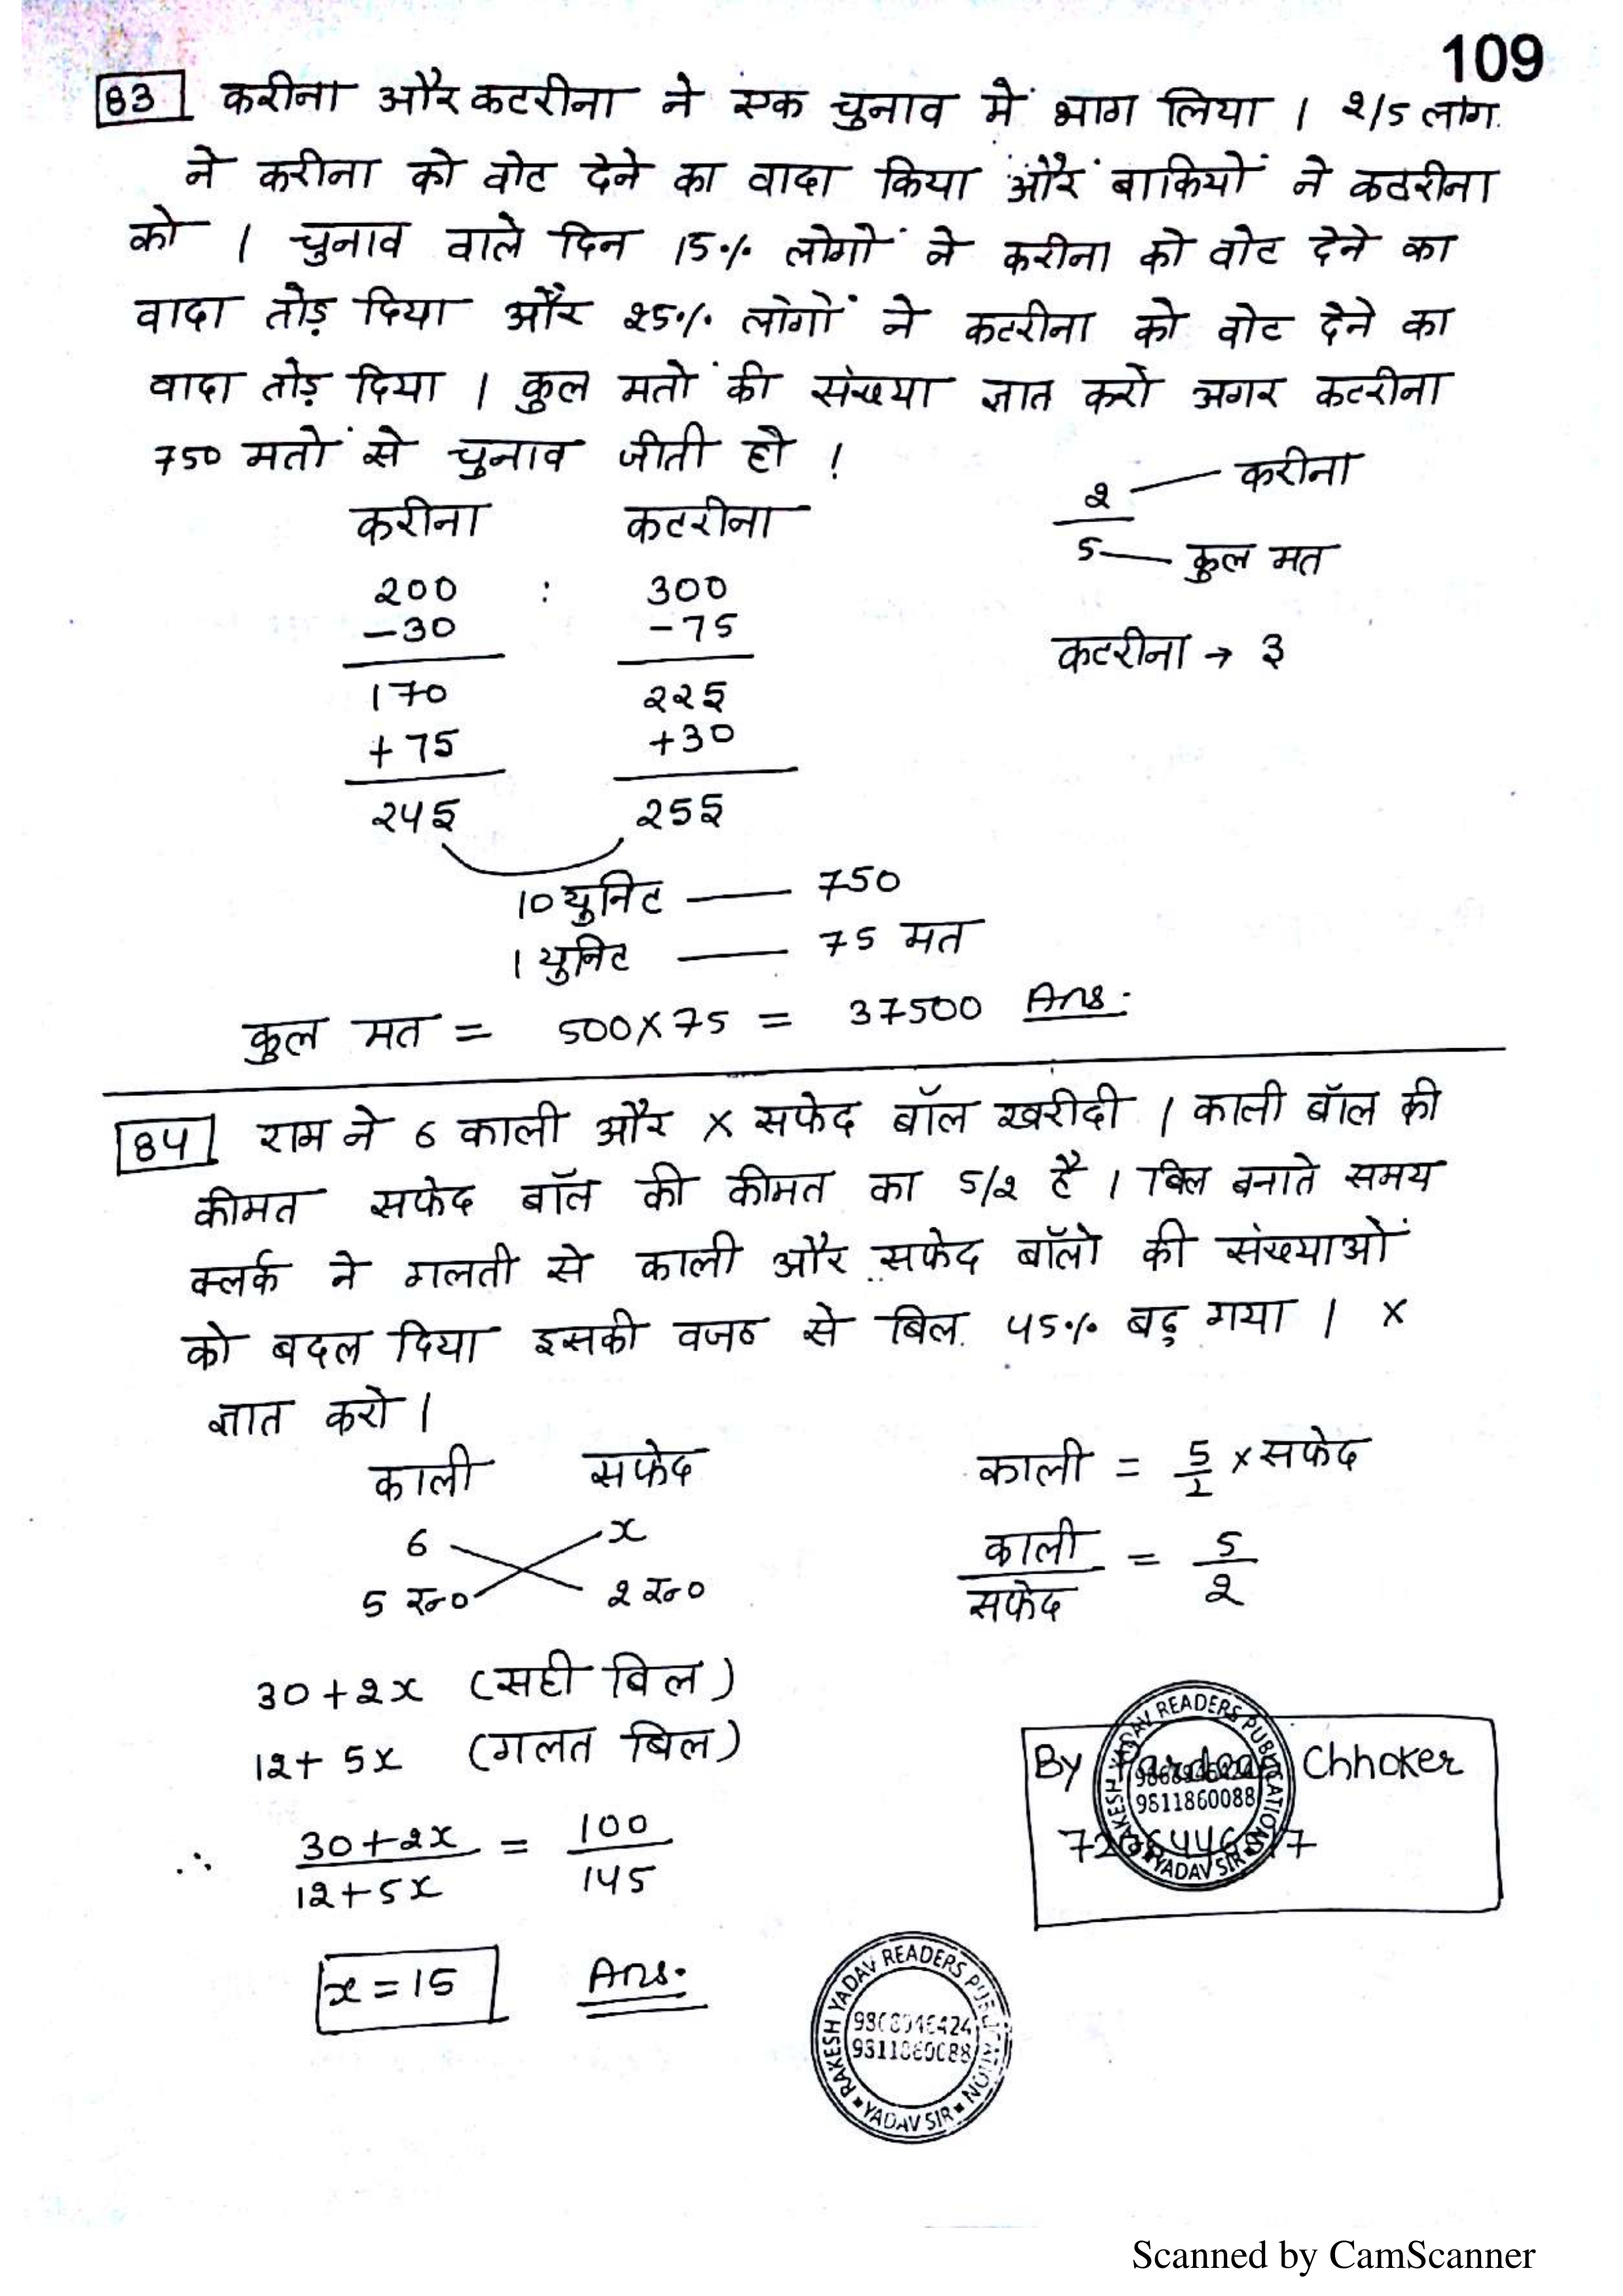 109
83 करीना और कटरीना ने एक चुनाव में भाग लिया । 2/5 लोग
ने करीना को वोट देने का वादा किया और बाकियों ने कटरीना
को । चुनाव वाले दिन 15% लोगों ने करीना को वोट देने का
वादा तोड़ दिया और 25% लोगों ने कटरीना को वोट देने का
वादा तोड़ दिया । कुल मतों की संख्या ज्ञात करो अगर कटरीना
750 मतों से चुनाव जीती हो !
करीना कटरीना
200 : 300
-30 -75
170 225
+75 +30
245 255
2 — करीना
5 — कुल मत
कटरीना → 3
10 युनिट — 750
1 युनिट — 75 मत
कुल मत = 500×75 = 37500 Ans.
84 राम ने 6 काली और x सफेद बॉल खरीदी । काली बॉल की
कीमत सफेद बॉल की कीमत का 5/2 है । बिल बनाते समय
क्लर्क ने गलती से काली और सफेद बॉलो की संख्याओं
को बदल दिया इसकी वजह से बिल 45% बढ़ गया । x
ज्ञात करो ।
काली सफेद
6 x
5 रू० 2 रू०
काली = 5/2 × सफेद
काली/सफेद = 5/2
30+2x (सही बिल)
12+5x (गलत बिल)
∴ 30+2x/12+5x = 100/145
x=15 Ans.
By Chhoker
RAKESH YADAV READERS PUBLICATION
9811860088
YADAV SIR
RAKESH YADAV READERS PUBLICATION
YADAV SIR
Scanned by CamScanner